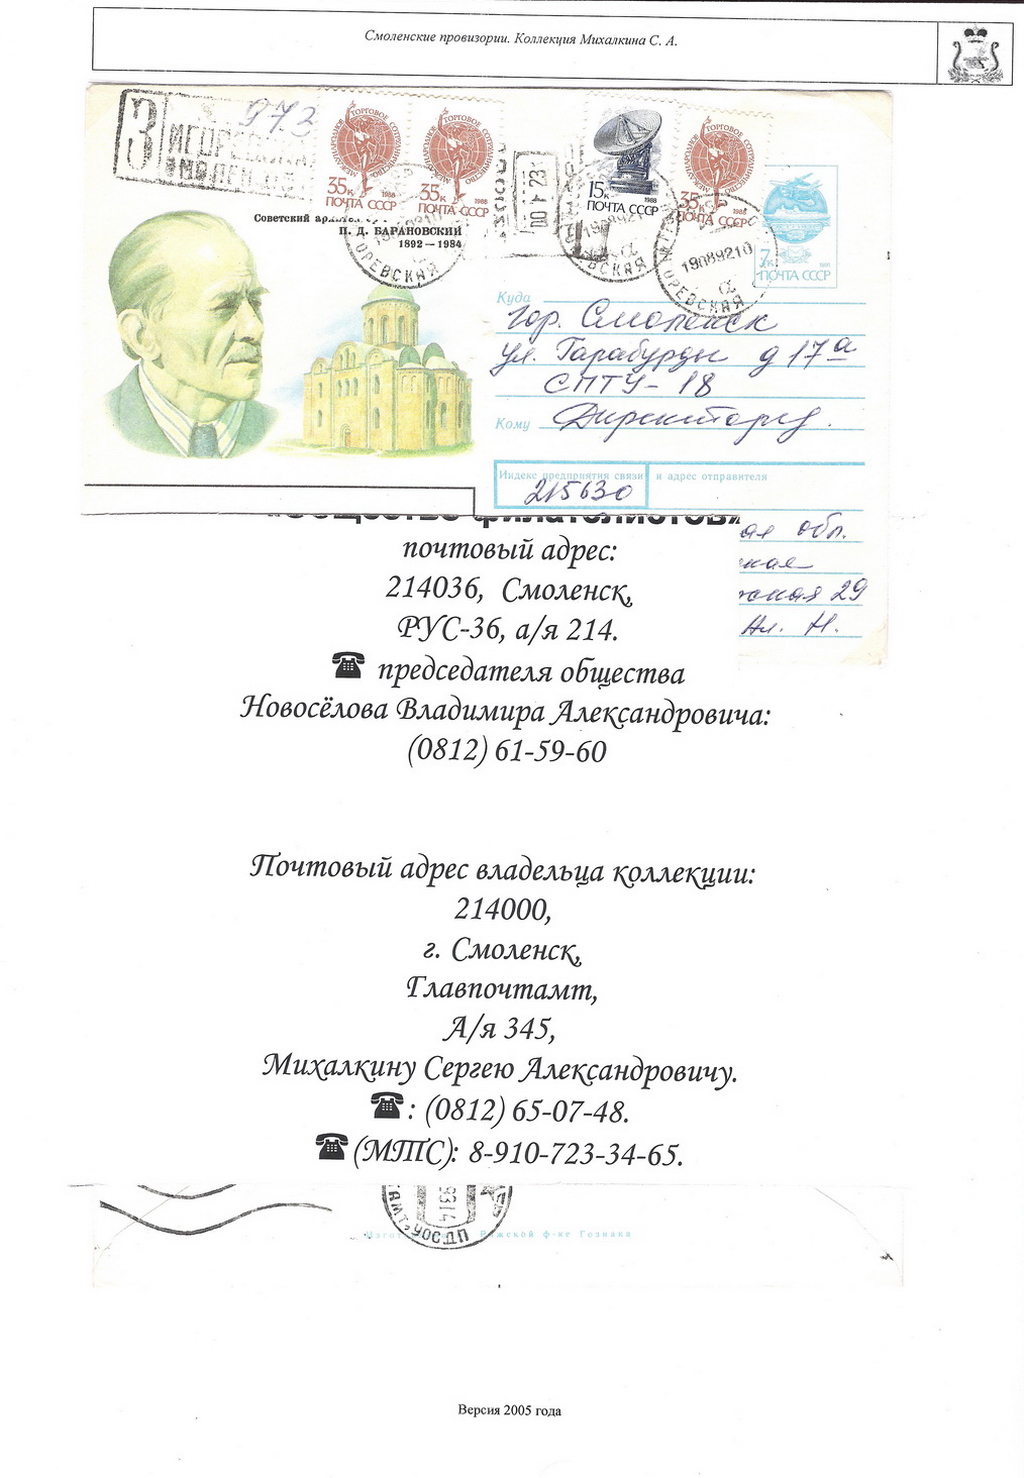 Смоленские провизории. Коллекция Михалкина С. А.
З
973
35к
ПОЧТА СССР
1988
35к
ПОЧТА СССР
1988
15к
ПОЧТА СССР
1988
35к
ПОЧТА СССР
1988
7к
ПОЧТА СССР
Советский
П. Д. БАРАНОВСКИЙ
1892 — 1984
ОРЕВСКАЯ
1908921
1908921О
ОРЕВСКАЯ
Куда
гор. Смоленск
ул. Гарабурды д 17а
СПТУ-18
Кому Директору.
Индекс предприятия связи и адрес отправителя
215630
почтовый адрес:
ая обл.
214036, Смоленск,
РУС-36, а/я 214.
жская 29
Ал. Н.
председателя общества
Новосёлова Владимира Александровича:
(0812) 61-59-60
Почтовый адрес владельца коллекции:
214000,
г. Смоленск,
Главпочтамт,
А/я 345,
Михалкину Сергею Александровичу.
: (0812) 65-07-48.
(МТС): 8-910-723-34-65.
жской ф-ке Гознака
Версия 2005 года